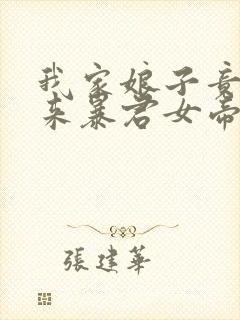 我家娘子竟
来暴君女帝
張建華